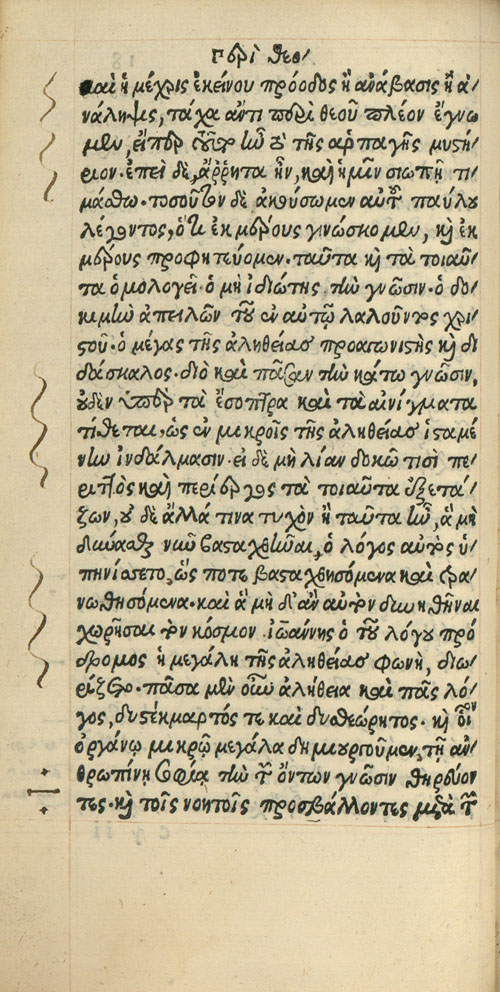 περὶ θεο/
καὶ ἡ μέχρις ἐκείνου πρόοδος ἢ ἀνάβασις ἢ ἀ-
νάληψις, τάχα ἄν τι περὶ θεοῦ πλέον ἔγνω
μεν, εἴπερ τοῦτο ἦν τὸ τῆς ἁρπαγῆς μυστή-
ριον. ἐπεὶ δὲ, ἄῤῥητα ἦν, καὶ ἡμῖν σιωπῇ τι
μάσθω. τοσοῦτον δὲ ἀκούσωμεν αὐτοῦ παύλου
λέγοντος, ὅτι ἐκ μέρους γινώσκομεν, καὶ ἐκ
μέρους προφητεύομεν. ταῦτα καὶ τὰ τοιαῦ-
τα ὁμολογεῖ. ὁ μὴ ἰδιώτης τὴν γνῶσιν. ὁ δο-
κιμὴν ἀπειλῶν τοῦ ἐν αὐτῷ λαλοῦντος χρι
στοῦ. ὁ μέγας τῆς ἀληθείας προαγωνιστὴς καὶ δι
δάσκαλος. διὸ καὶ πᾶσαν τὴν κάτω γνῶσιν,
οὐδὲν ὑπὲρ τὰ ἔσοπτρα καὶ τὰ αἰνίγματα
τίθεται, ὡς ἐν μικροῖς τῆς ἀληθείας ἱσταμέ
νην ἰνδάλμασιν. εἰ δὲ μὴ λίαν δοκῶ τισὶ πε
ριττὸς καὶ περίεργος τὰ τοιαῦτα ἐξετά-
ζων, οὐδὲ ἄλλά τινα τυχὸν ἢ ταῦτα ἦν, ἃ μὴ
δύνασθαι νῦν βασταχθῆναι, ὁ λόγος αὐτὸς ὑ-
πηνίσσετο, ὥς ποτε βασταχθησόμενα καὶ τρα-
νωθησόμενα. καὶ ἃ μὴ δ' ἂν αὐτὸν δυνηθῆναι
χωρῆσαι τὸν κόσμον ἰωάννης ὁ τοῦ λόγου πρό
δρομος ἡ μεγάλη τῆς ἀληθείας φωνὴ, διω
ρίζετο. πᾶσα μὲν οὖν ἀλήθεια καὶ πᾶς λό-
γος, δυστέκμαρτός τε καὶ δυσθεώρητος. καὶ οἷον
ὀργάνῳ μικρῷ μεγάλα δημιουργοῦμεν, τῇ ἀν
θρωπίνῃ σοφίᾳ τὴν τῶν ὄντων γνῶσιν θηρεύον
τες. καὶ τοῖς νοητοῖς προσβάλλοντες μετὰ τῶν